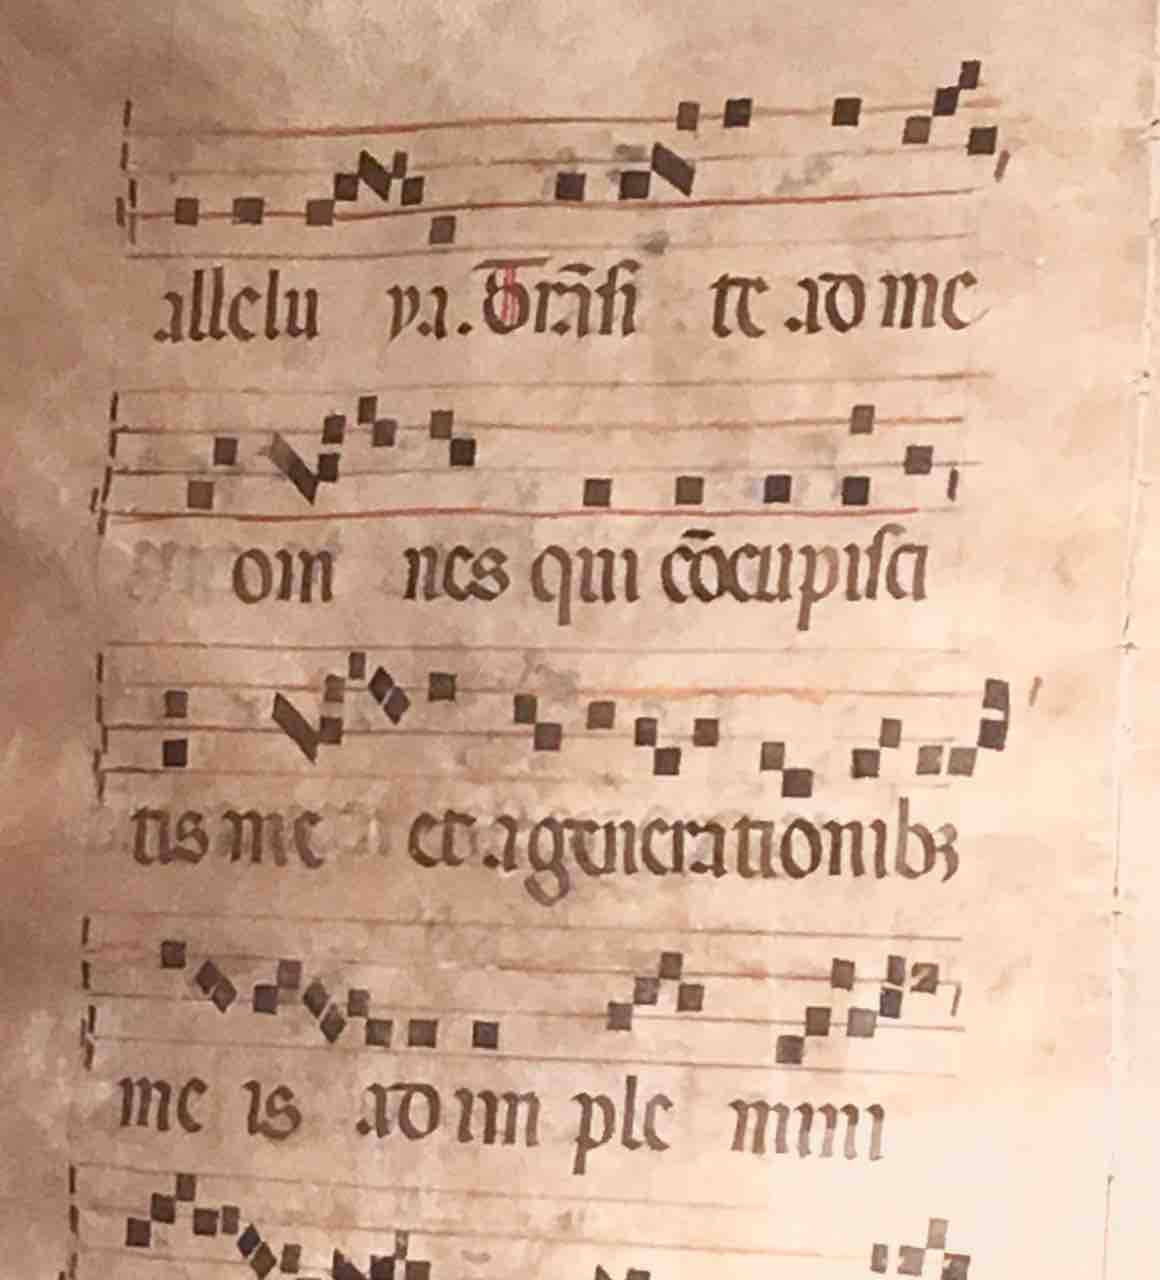 allelu ya. Trãsi te ad me
om nes qui cõcupisci
tis me et a generationibꝫ
me is ad im ple mini